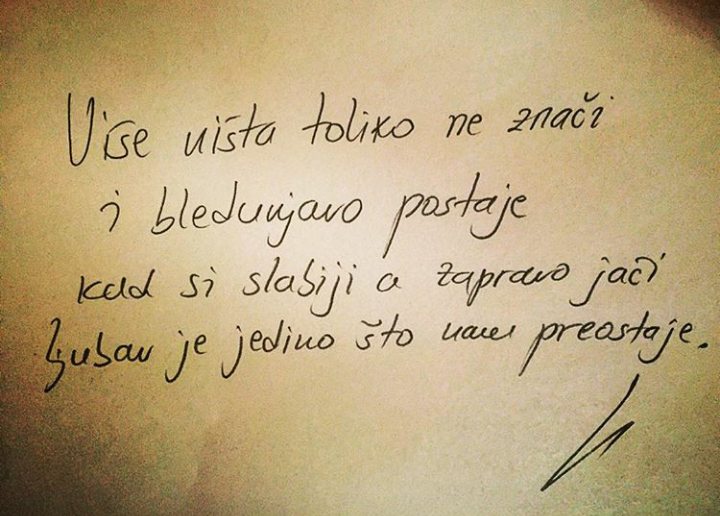 Više ništa toliko ne znači
i bledunjavo postaje
kad si slabiji a zapravo jači
ljubav je jedino što nam preostaje.